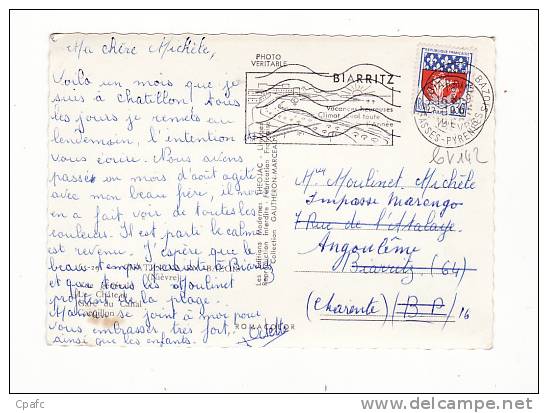 Ma chère Michèle,
Voilà un mois que je
suis à Chatillon. Tous
les jours je remets au
lendemain, l'intention de
vous écrire. Nous avons
passé un mois d'août agité
avec mon beau frère, il nous
en a fait voir de toutes les
couleurs. Il est parti le calme
est revenu. J'espère que le
beau temps persiste à Biarritz
et que tous les Moulinet
profitez de la plage.
Maman se joint à moi pour
vous embrasser très fort,
ainsi que les enfants.
CHATILLON
(Nièvre)
Le Château
du Canal
PHOTO
VERITABLE
BIARRITZ
Vacances heureuses
Climat idéal toute
l'Année
REPUBLIQUE FRANÇAISE
BASSES-PYRENEES
6V142
Les Editions Modernes THEOJAC
Reproduction Interdite - Fabrication Française
Collection GAUTHERON-MARCEAU
ROMACOLOR
Mme Moulinet Michèle
Impasse Marengo
7 Rue de l'Atalaye
Angoulême
Biarritz (64)
(Charente) (B P) 16
Cpafc
delcampe.net